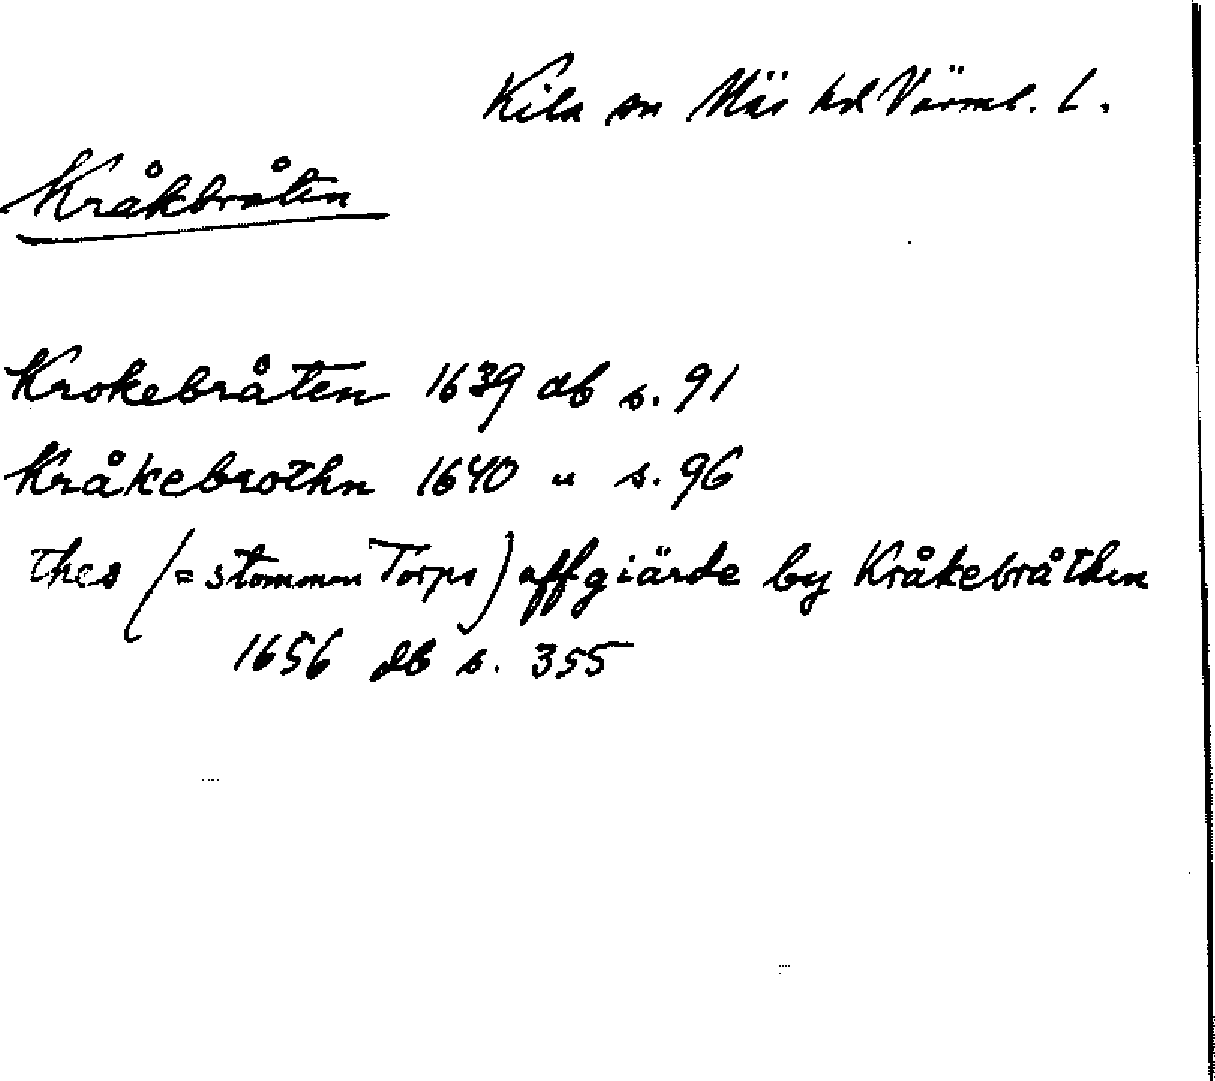 Kila sn Näs hd Värml. l.
Kråkbråten
Krokebråten 1639 db s. 91
Kråkebrothn 1640 " s. 96
thes (= stommen Torps) affgiärde by Kråkebråthen
1656 db s. 355